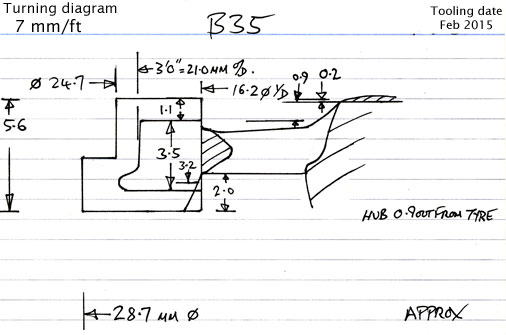 Turning diagram
7 mm/ft
B35
Tooling date
Feb 2015
3'0"=21.0MM O/D.
ø 24.7
16.2 ø I/D
0.9
0.2
1.1
5.6
3.5
3.2
2.0
HUB 0.9 OUT FROM TYRE
28.7 MM ø
APPROX